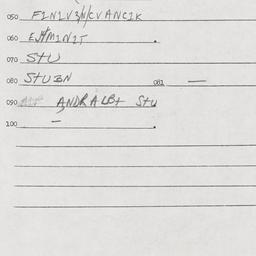 050 FINIV3N/CVANCIK
060 EJTMINIT.
070 StU
080 StU3N 081 —
090 ANDRALBT StU
100 — .